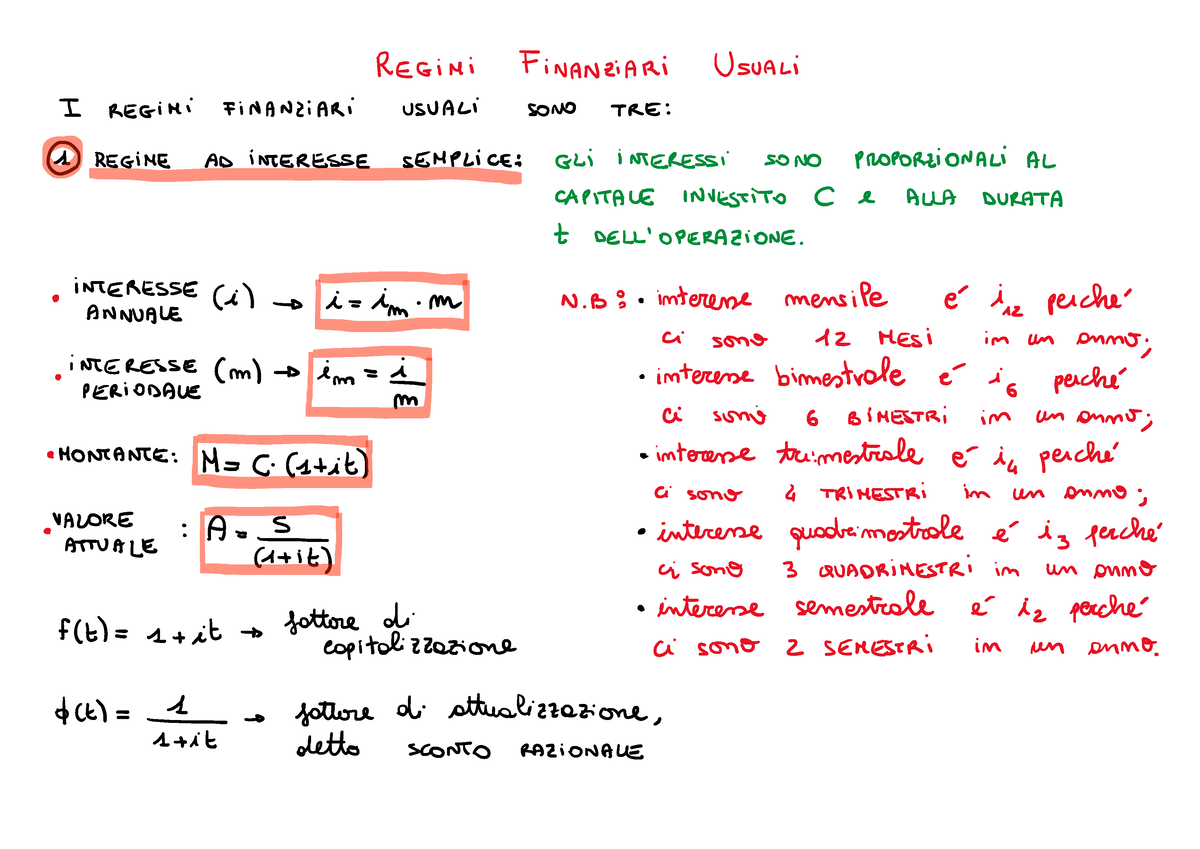 REGIMI FINANZIARI USUALI
I REGIMI FINANZIARI USUALI SONO TRE:
1 REGIME AD INTERESSE SEMPLICE:
GLI INTERESSI SONO PROPORZIONALI AL
CAPITALE INVESTITO C e ALLA DURATA
t DELL'OPERAZIONE.
• INTERESSE ANNUALE (i) → i = iₘ · m
• INTERESSE PERIODALE (m) → iₘ = i/m
• MONTANTE: M = C · (1+it)
• VALORE ATTUALE : A = S/(1+it)
f(t) = 1+it → fattore di
capitalizzazione
ϕ(t) = 1/(1+it) → fattore di attualizzazione,
detto SCONTO RAZIONALE
N.B: • interesse mensile é i₁₂ perché
ci sono 12 MESI in un anno;
• interesse bimestrale é i₆ perché
ci sono 6 BIMESTRI in un anno;
• interesse trimestrale é i₄ perché
ci sono 4 TRIMESTRI in un anno;
• interesse quadrimestrale é i₃ perché
ci sono 3 QUADRIMESTRI in un anno
• interesse semestrale é i₂ perché
ci sono 2 SEMESTRI in un anno.